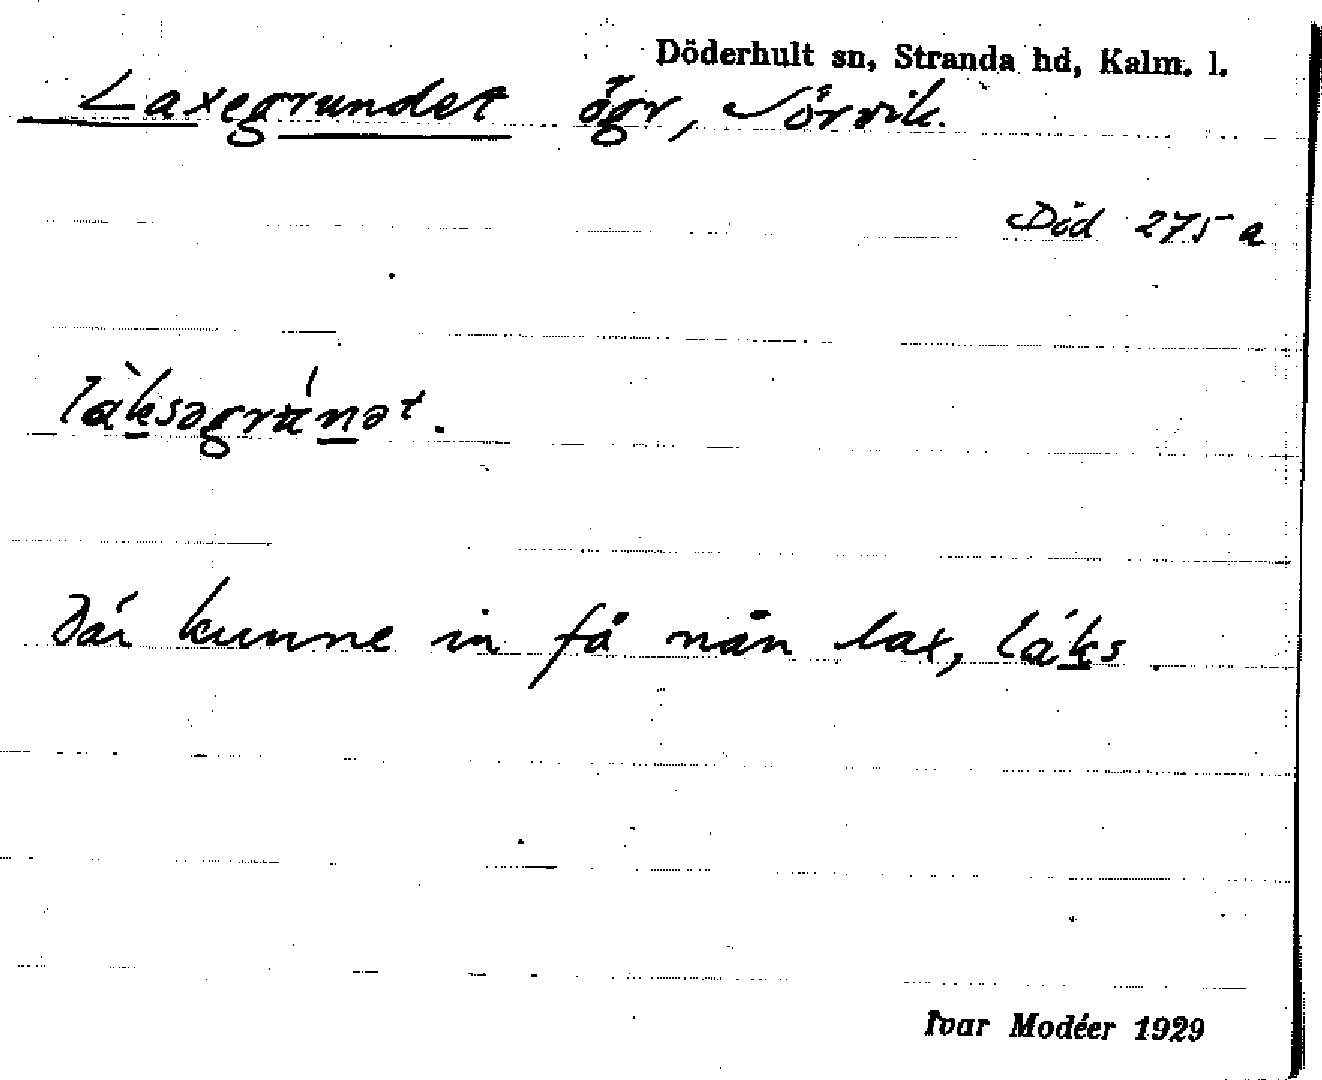 Döderhult sn, Stranda hd, Kalm. l.
Laxegrundet ögr, Sörvik.
Död 275 a
làksəgrúnət.
Där kunne in få nån lax, láks.
Ivar Modéer 1929